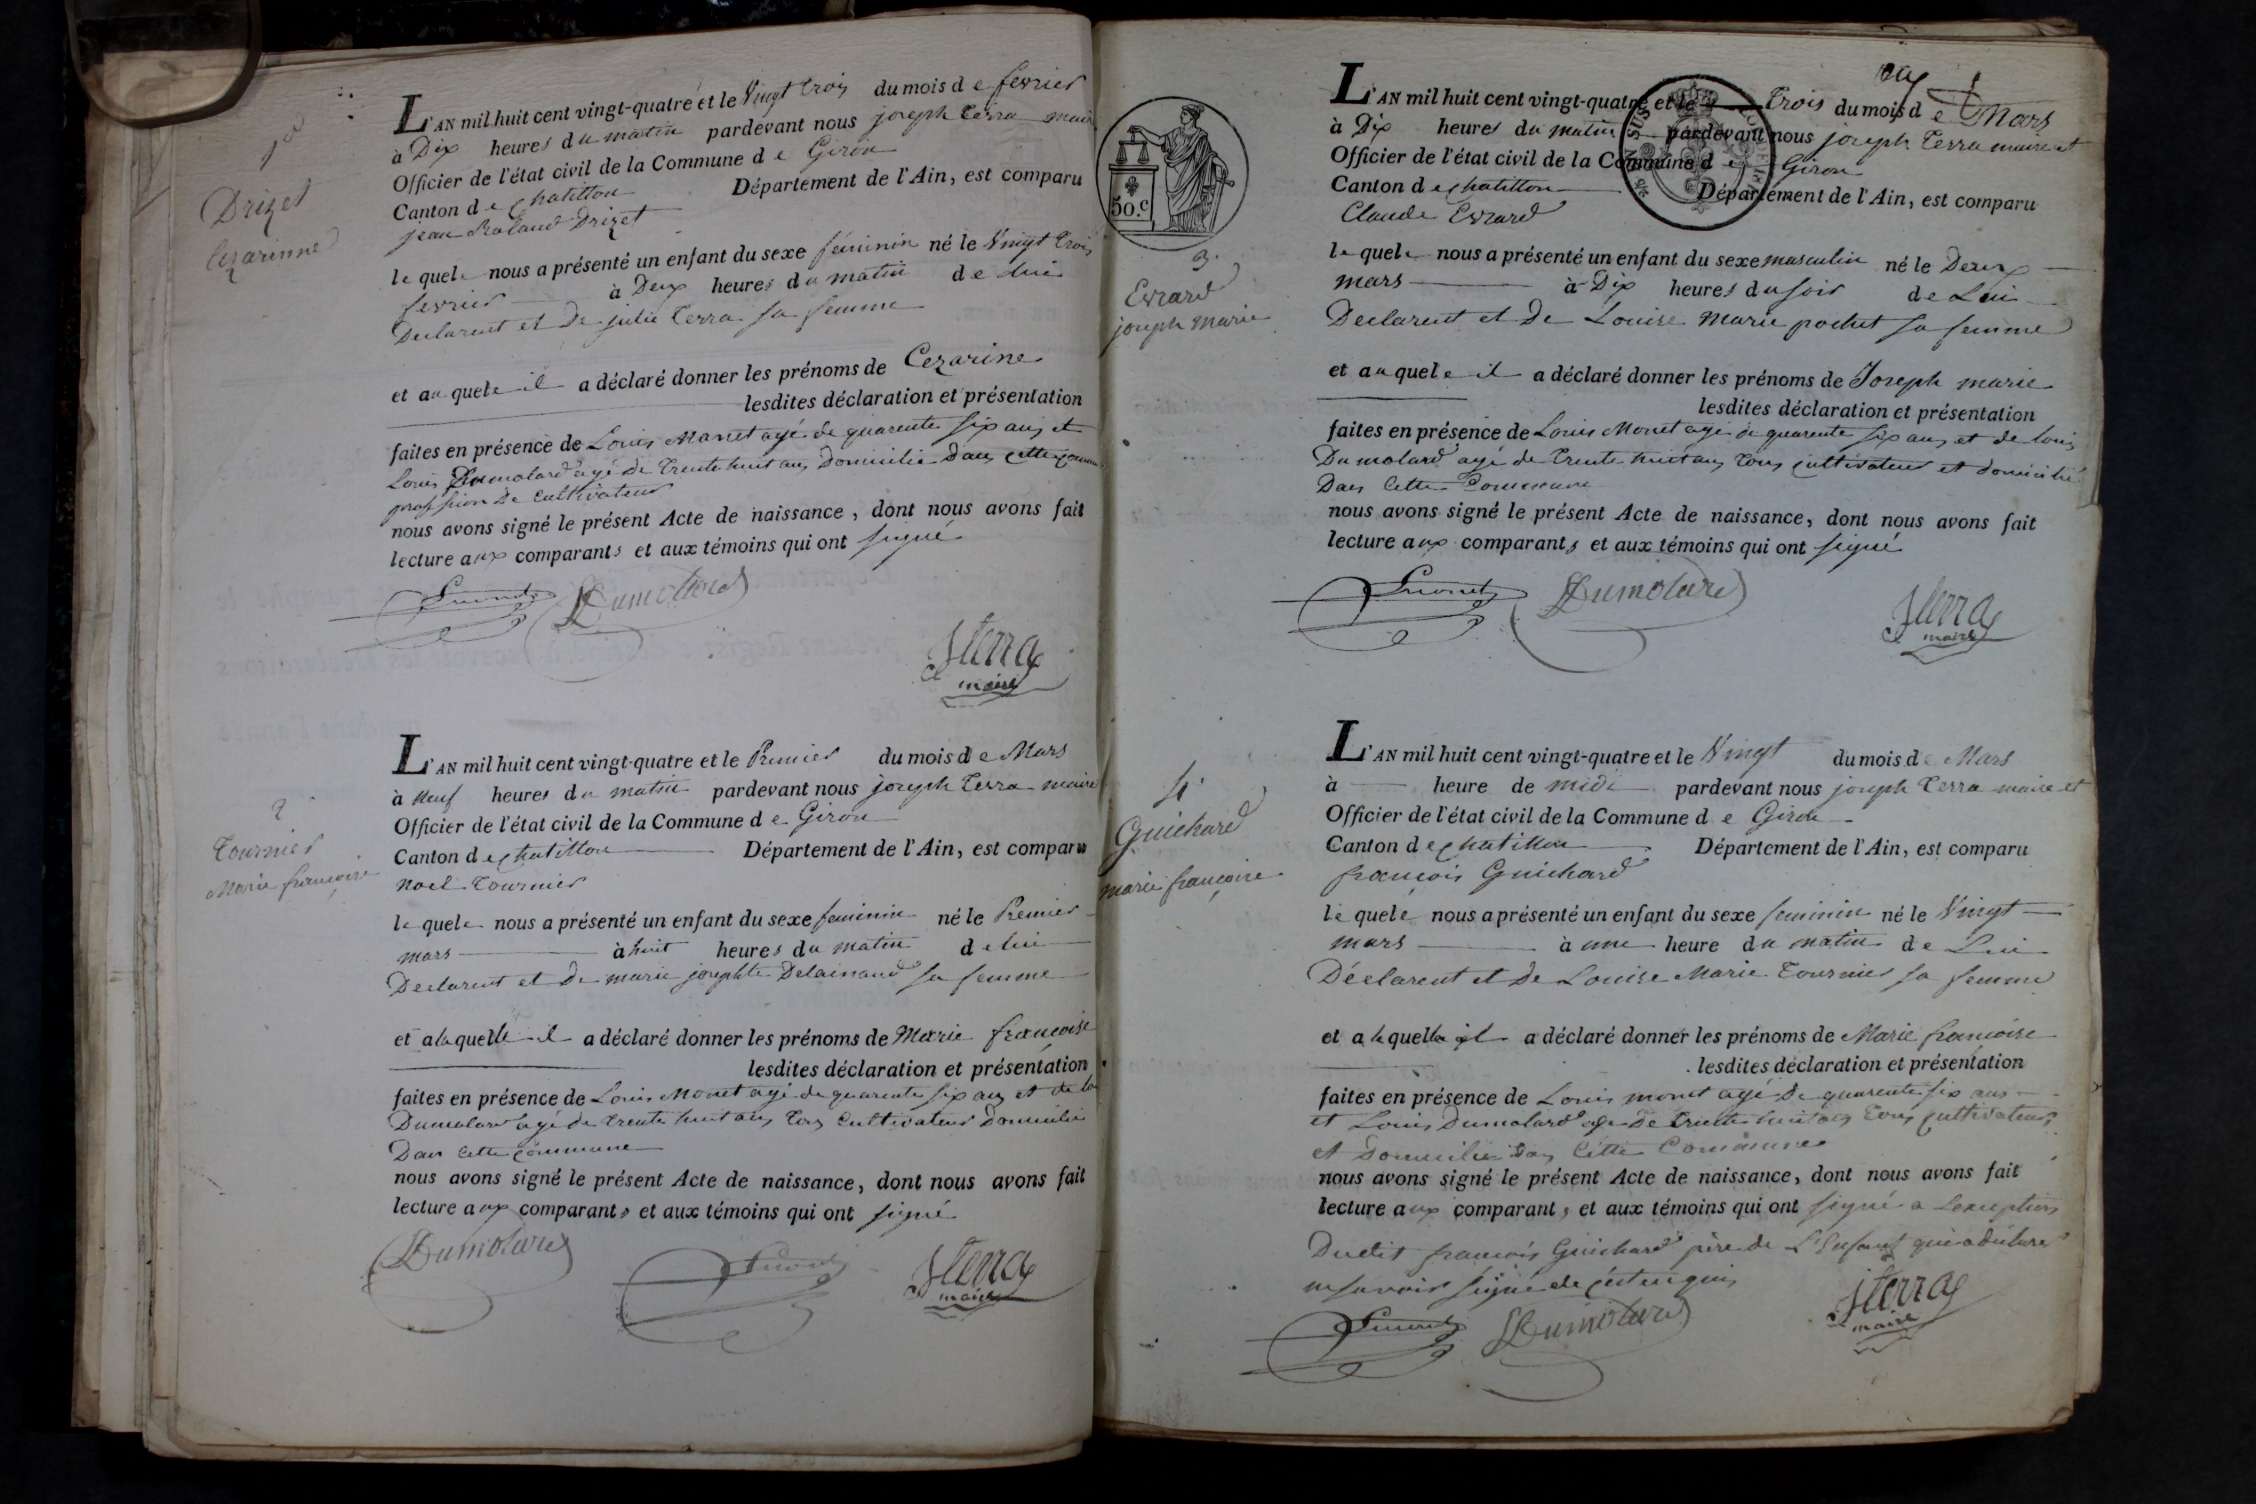 1er
Drizet
Cezarinne
L'AN mil huit cent vingt-quatre et le Vingt trois du mois de fevrier
à Dix heures du matin pardevant nous joseph Terra maire
Officier de l'état civil de la Commune de Giron
Canton de chatillon Département de l'Ain, est comparu
jean Roland Drizet
le quel nous a présenté un enfant du sexe féminin né le Vingt trois
fevrier à Deux heures du matin de lui
Declarent et De julie Terra sa femme
et au quele il a déclaré donner les prénoms de Cezarine
lesdites déclaration et présentation
faites en présence de Louis Monet agé de quarente six ans et
Louis Dumolard agé de trente huit ans Domicilié Dans cette commune
proffsion De cultivateur
nous avons signé le présent Acte de naissance, dont nous avons fait
lecture aux comparants et aux témoins qui ont signé
Lmonet LDumolard
jterra
maire
2
Tournier
Marie françoise
L'AN mil huit cent vingt-quatre et le Premier du mois de Mars
à Neuf heures du matin pardevant nous joseph Terra maire
Officier de l'état civil de la Commune de Giron
Canton de chatillon Département de l'Ain, est comparu
Noel Tournier
le quele nous a présenté un enfant du sexe feminin né le Premier
mars à huit heures du matin de lui
Declarent et De marie josephte Delainaud sa femme
et a la quelle il a déclaré donner les prénoms de Marie françoise
lesdites déclaration et présentation
faites en présence de Louis Monet agé de quarente six ans et de
Dumolard agé de trente huit ans Tous Cultivateur Domicilié
Dans cette commune
nous avons signé le présent Acte de naissance, dont nous avons fait
lecture aux comparants et aux témoins qui ont signé
LDumolard Lmonet jterra
maire
50.c
3.
Evrard
joseph marie
L'AN mil huit cent vingt-quatre et le Trois du mois de Mars
à Dix heures du matin pardevant nous joseph Terra maire et
Officier de l'état civil de la Commune de Giron
Canton de chatillon Département de l'Ain, est comparu
Claude Evrard
le quele nous a présenté un enfant du sexe masculin né le Deux
mars à Dix heures du soir de Lui
Declarent et De Louise Marie pochet sa femme
et au quele il a déclaré donner les prénoms de Joseph marie
lesdites déclaration et présentation
faites en présence de Louis Monet agé de quarente six ans et de louis
Dumolard agé de trente huit ans Tous cultivateur et domicilié
Dans Cette Commune
nous avons signé le présent Acte de naissance, dont nous avons fait
lecture aux comparants et aux témoins qui ont signé
Lmonet LDumolard jterra
maire
4
Guichard
marie françoise
L'AN mil huit cent vingt-quatre et le Vingt du mois de Mars
à heure de midi pardevant nous joseph Terra maire et
Officier de l'état civil de la Commune de Giron
Canton de chatillon Département de l'Ain, est comparu
françois Guichard
le quele nous a présenté un enfant du sexe feminin né le Vingt
mars à une heure du matin de Lui
Déclarent et De Louise Marie Tournier sa femme
et a la quelle il a déclaré donner les prénoms de Marie françoise
lesdites déclaration et présentation
faites en présence de Louis monet agé De quarente six ans
et Louis Dumolard age De trente huit ans Tous Cultivateurs
et Domicilié Dans Cette Commune
nous avons signé le présent Acte de naissance, dont nous avons fait
lecture aux comparants et aux témoins qui ont signé a Lexception
Dudit françois Guichard père de L'Enfant qui a déclaré
ne savoir signé de ce
Lmonet LDumolard jterra
maire